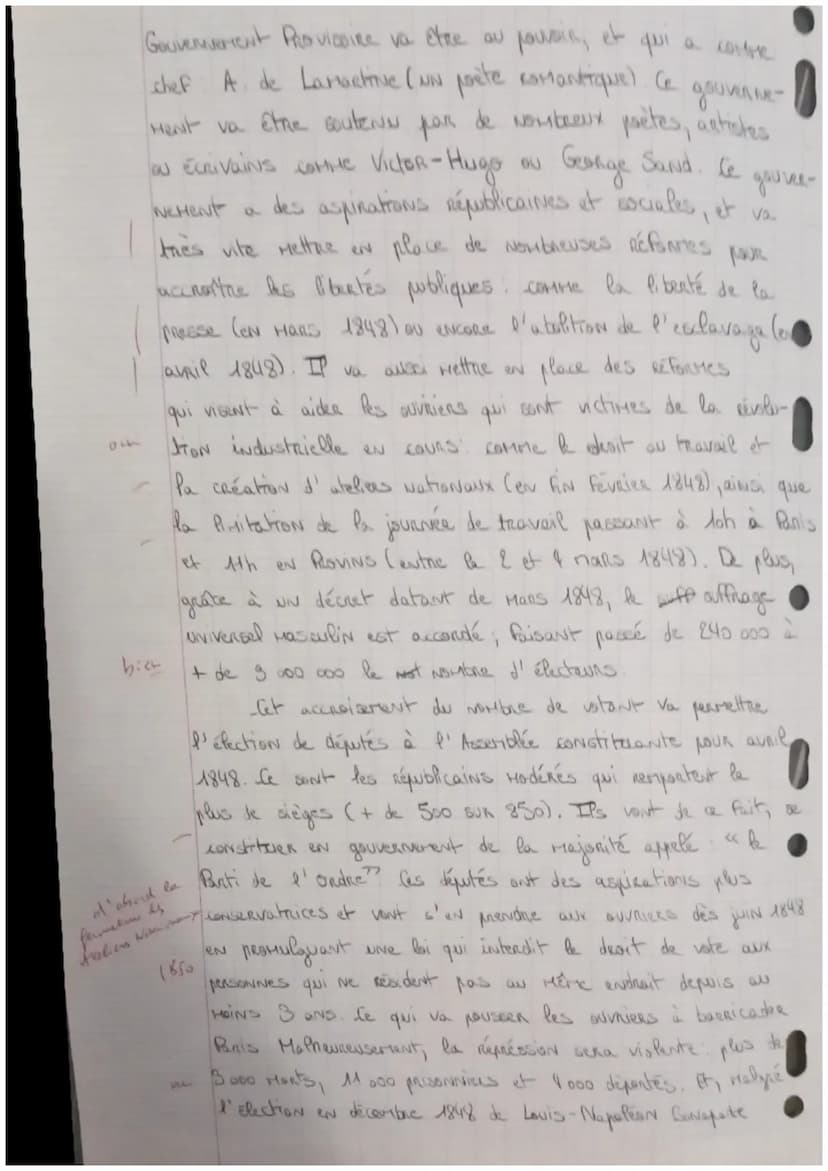 Gouvernement Provisoire va être au pouvoir, et qui a comme
chef A. de Lamartine (un poète romantique) Ce gouverne-
ment va être soutenu par de nombreux poètes, artistes
ou écrivains comme Victor-Hugo ou George Sand. Ce gouver-
nement a des aspirations républicaines et sociales, et va
très vite mettre en place de nombreuses réformes pour
accroître les libertés publiques : comme la liberté de la
presse (en mars 1848) ou encore l'abolition de l'esclavage (en
avril 1848). Il va aussi mettre en place des réformes
qui visent à aider les ouvriers qui sont victimes de la révolu-
oui
tion industrielle en cours : comme le droit au travail et
la création d'ateliers nationaux (en fin février 1848), ainsi que
la limitation de la journée de travail passant à 10h à Paris
et 11h en Provins (entre le 2 et 4 mars 1848). De plus,
grâce à un décret datant de mars 1848, le suffrage
universel masculin est accordé ; faisant passé de 240 000 à
bien
+ de 9 000 000 le nombre d'électeurs.
Cet accroisement du nombre de votant va permettre
l'élection de députés à l'Assemblée constituante pour avril
1848. Ce sont les républicains modérés qui remportent le
plus de sièges (+ de 500 sur 850). Ils vont de ce fait, se
constituer en gouvernement de la majorité appelé : "le
Parti de l'ordre" Ces députés ont des aspirations plus
d'abord la
fermeture des
Ateliers Nationaux
conservatrices et vont s'en prendre aux ouvriers dès juin 1848
en promulguant une loi qui interdit le droit de vote aux
1850
personnes qui ne résident pas au même endroit depuis au
moins 3 ans. Ce qui va pousser les ouvriers à barricadre
Paris Malheureusement, la répression sera violente : plus de
3 000 morts, 11 000 prisonniers et 4 000 déportés. Et, malgré
l'élection en décembre 1848 de Louis-Napoléon Bonaparte